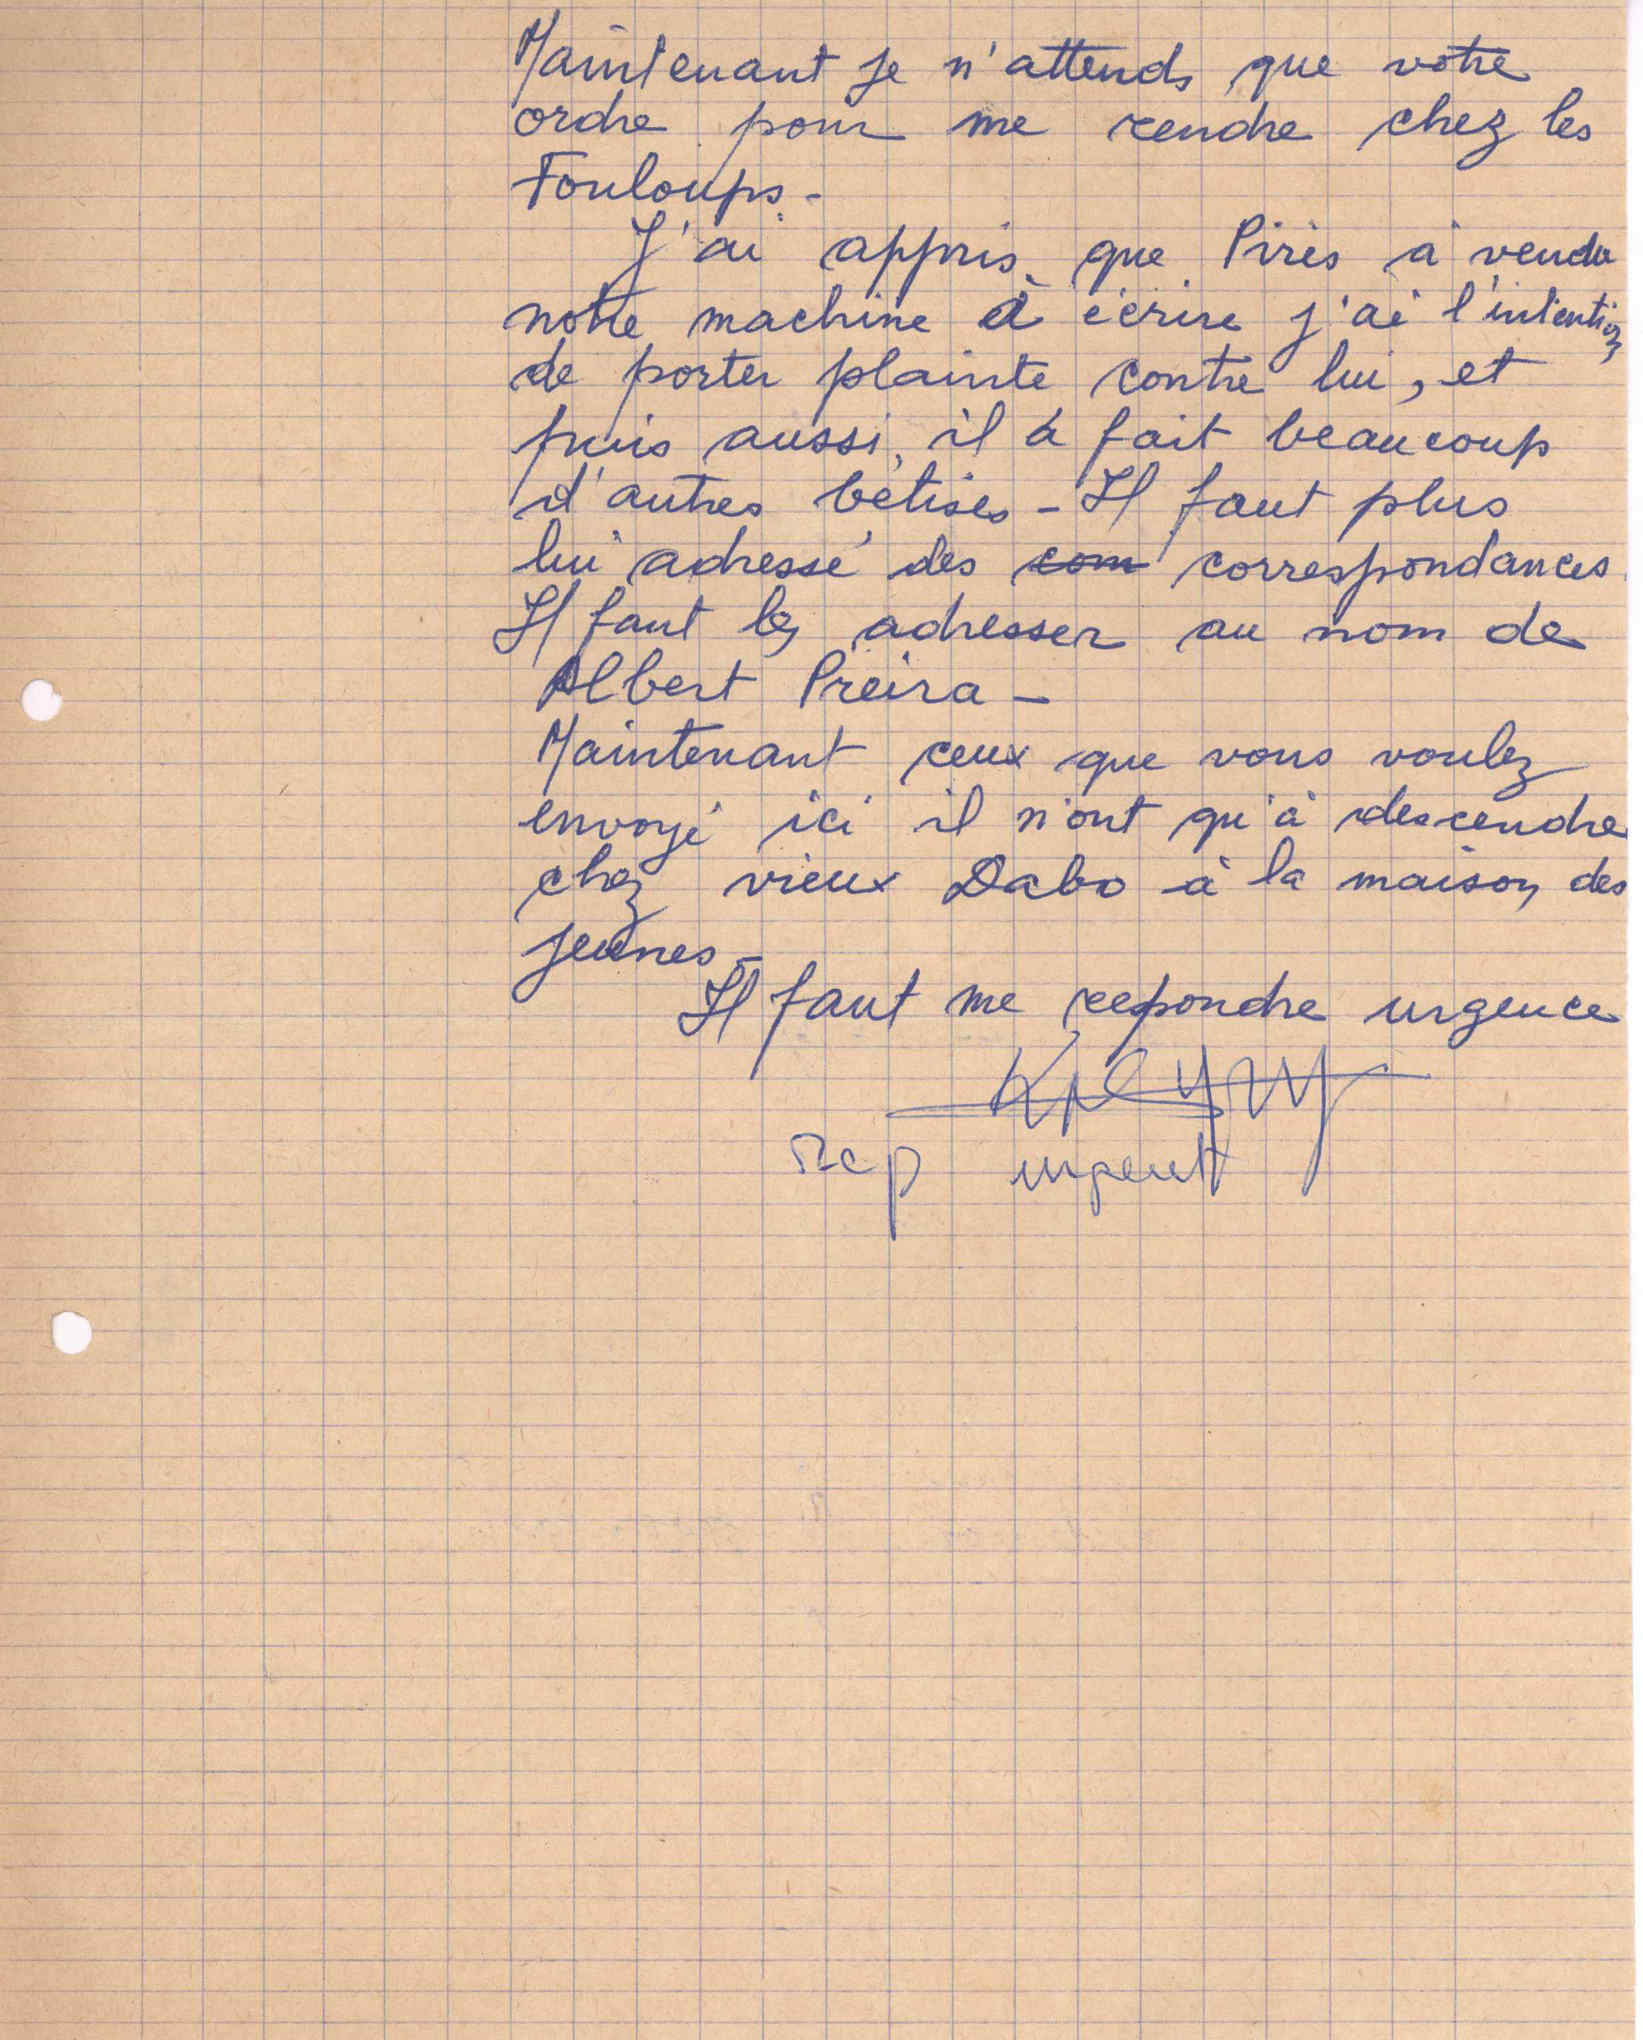 Maintenant je n'attends que votre
ordre pour me rendre chez les
Fouloups -
J'ai appris que Pirès à vendu
notre machine à écrire j'ai l'intention
de porter plainte contre lui, et
puis aussi, il à fait beaucoup
d'autres bétises - Il faut plus
lui adressé des com correspondances.
Il faut les adresser au nom de
Albert Préira -
Maintenant ceux que vous voulez
envoyé ici il n'ont qu'à descendre
chez vieux Dabo à la maison des
jeunes -
Il faut me repondre urgence
Rep urgent